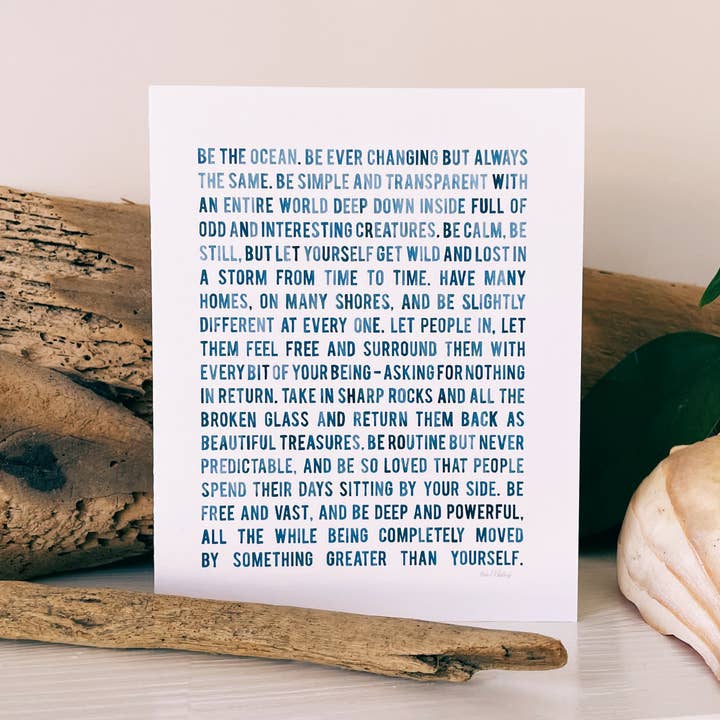 BE THE OCEAN. BE EVER CHANGING BUT ALWAYS
THE SAME. BE SIMPLE AND TRANSPARENT WITH
AN ENTIRE WORLD DEEP DOWN INSIDE FULL OF
ODD AND INTERESTING CREATURES. BE CALM, BE
STILL, BUT LET YOURSELF GET WILD AND LOST IN
A STORM FROM TIME TO TIME. HAVE MANY
HOMES, ON MANY SHORES, AND BE SLIGHTLY
DIFFERENT AT EVERY ONE. LET PEOPLE IN, LET
THEM FEEL FREE AND SURROUND THEM WITH
EVERY BIT OF YOUR BEING - ASKING FOR NOTHING
IN RETURN. TAKE IN SHARP ROCKS AND ALL THE
BROKEN GLASS AND RETURN THEM BACK AS
BEAUTIFUL TREASURES. BE ROUTINE BUT NEVER
PREDICTABLE, AND BE SO LOVED THAT PEOPLE
SPEND THEIR DAYS SITTING BY YOUR SIDE. BE
FREE AND VAST, AND BE DEEP AND POWERFUL,
ALL THE WHILE BEING COMPLETELY MOVED
BY SOMETHING GREATER THAN YOURSELF.